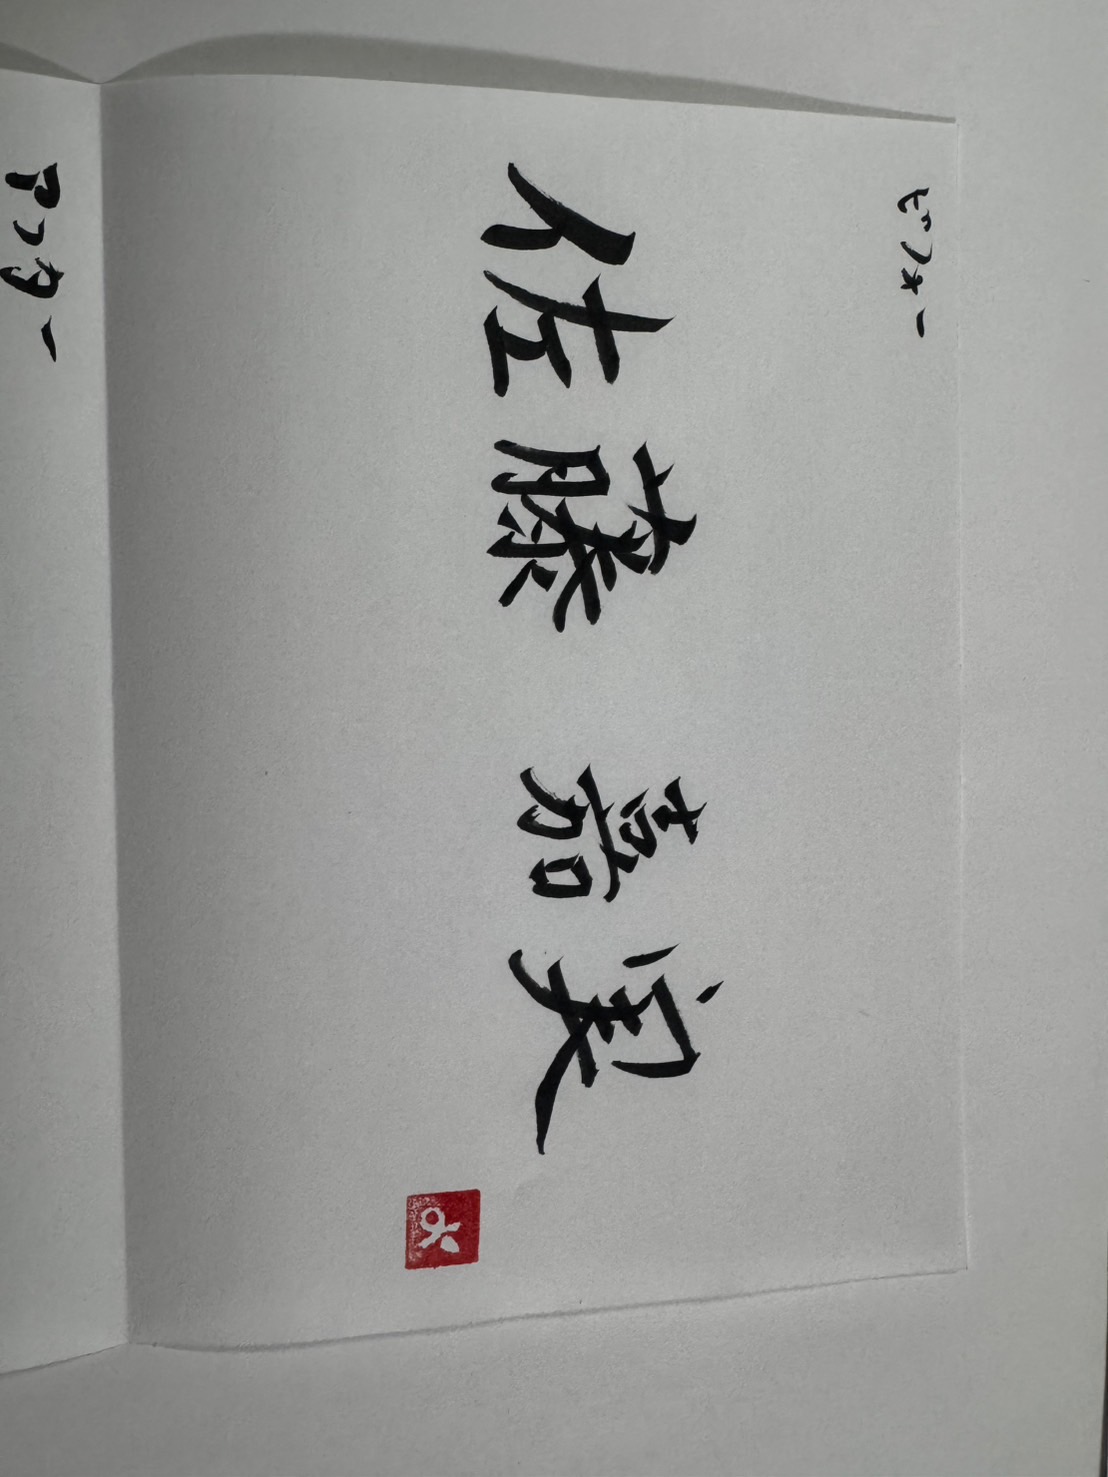 ビフォー
佐藤 嘉実
アフター